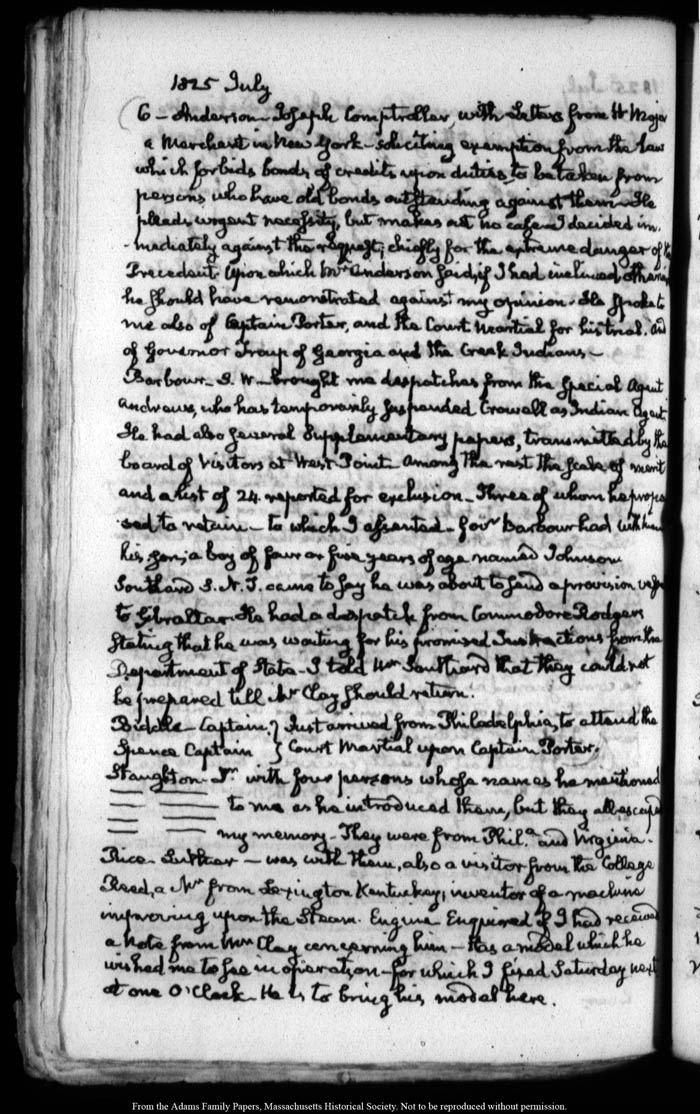 1825 July
6 — Anderson Joseph Comptroller, with Letters from H Major
a Merchant in New York — soliciting exemption from the law
which forbids bonds of credits upon duties to be taken from
persons who have old bonds outstanding against them — He
pleads urgent necessity, but makes out no case. I decided im-
-mediately against the request; chiefly for the extreme danger of the
Precedent. Upon which Mr Anderson said, if I had inclined otherwise
he should have remonstrated against my opinion. He spoke to
me also of Captain Porter, and the Court Martial for his trial. And
of Governor Troup of Georgia and the Creek Indians —
Barbour — S. W — brought me despatches from the Special Agent
Andrews, who has temporarily suspended Crowell as Indian Agent
He had also several Supplementary papers, transmitted by the
board of Visitors at West Point — Among the rest the Scale of merit
and a list of 24 reported for exclusion — Three of whom he propo
-sed to retain — to which I assented. Govr Barbour had with him
his son, a boy of four or five years of age named Johnson
Southard S. N. J. came to say he was about to send a provision
to Gibraltar. He had a despatch from Commodore Rodgers
stating that he was waiting for his promised Instructions from the
Department of State — I told Mr Southard that they could not
be prepared till Mr Clay should return.
Biddle — Captain } Just arrived from Philadelphia, to attend the
Spence Captain } Court Martial upon Captain Porter.
Staughton Dr with four persons whose names he mentioned
to me as he introduced them, but they all escaped
my memory — They were from Phila and Virginia.
Rice — Luther — was with them, also a visitor from the College
Reed, a Mr from Lexington Kentucky, inventor of a machine
improving upon the Steam Engine Enquired if I had received
a Note from Mrs Clay concerning him — Has a model which he
wished me to see in operation — for which I fixed Saturday next
at one O'Clock. He is to bring his model here.
From the Adams Family Papers, Massachusetts Historical Society. Not to be reproduced without permission.